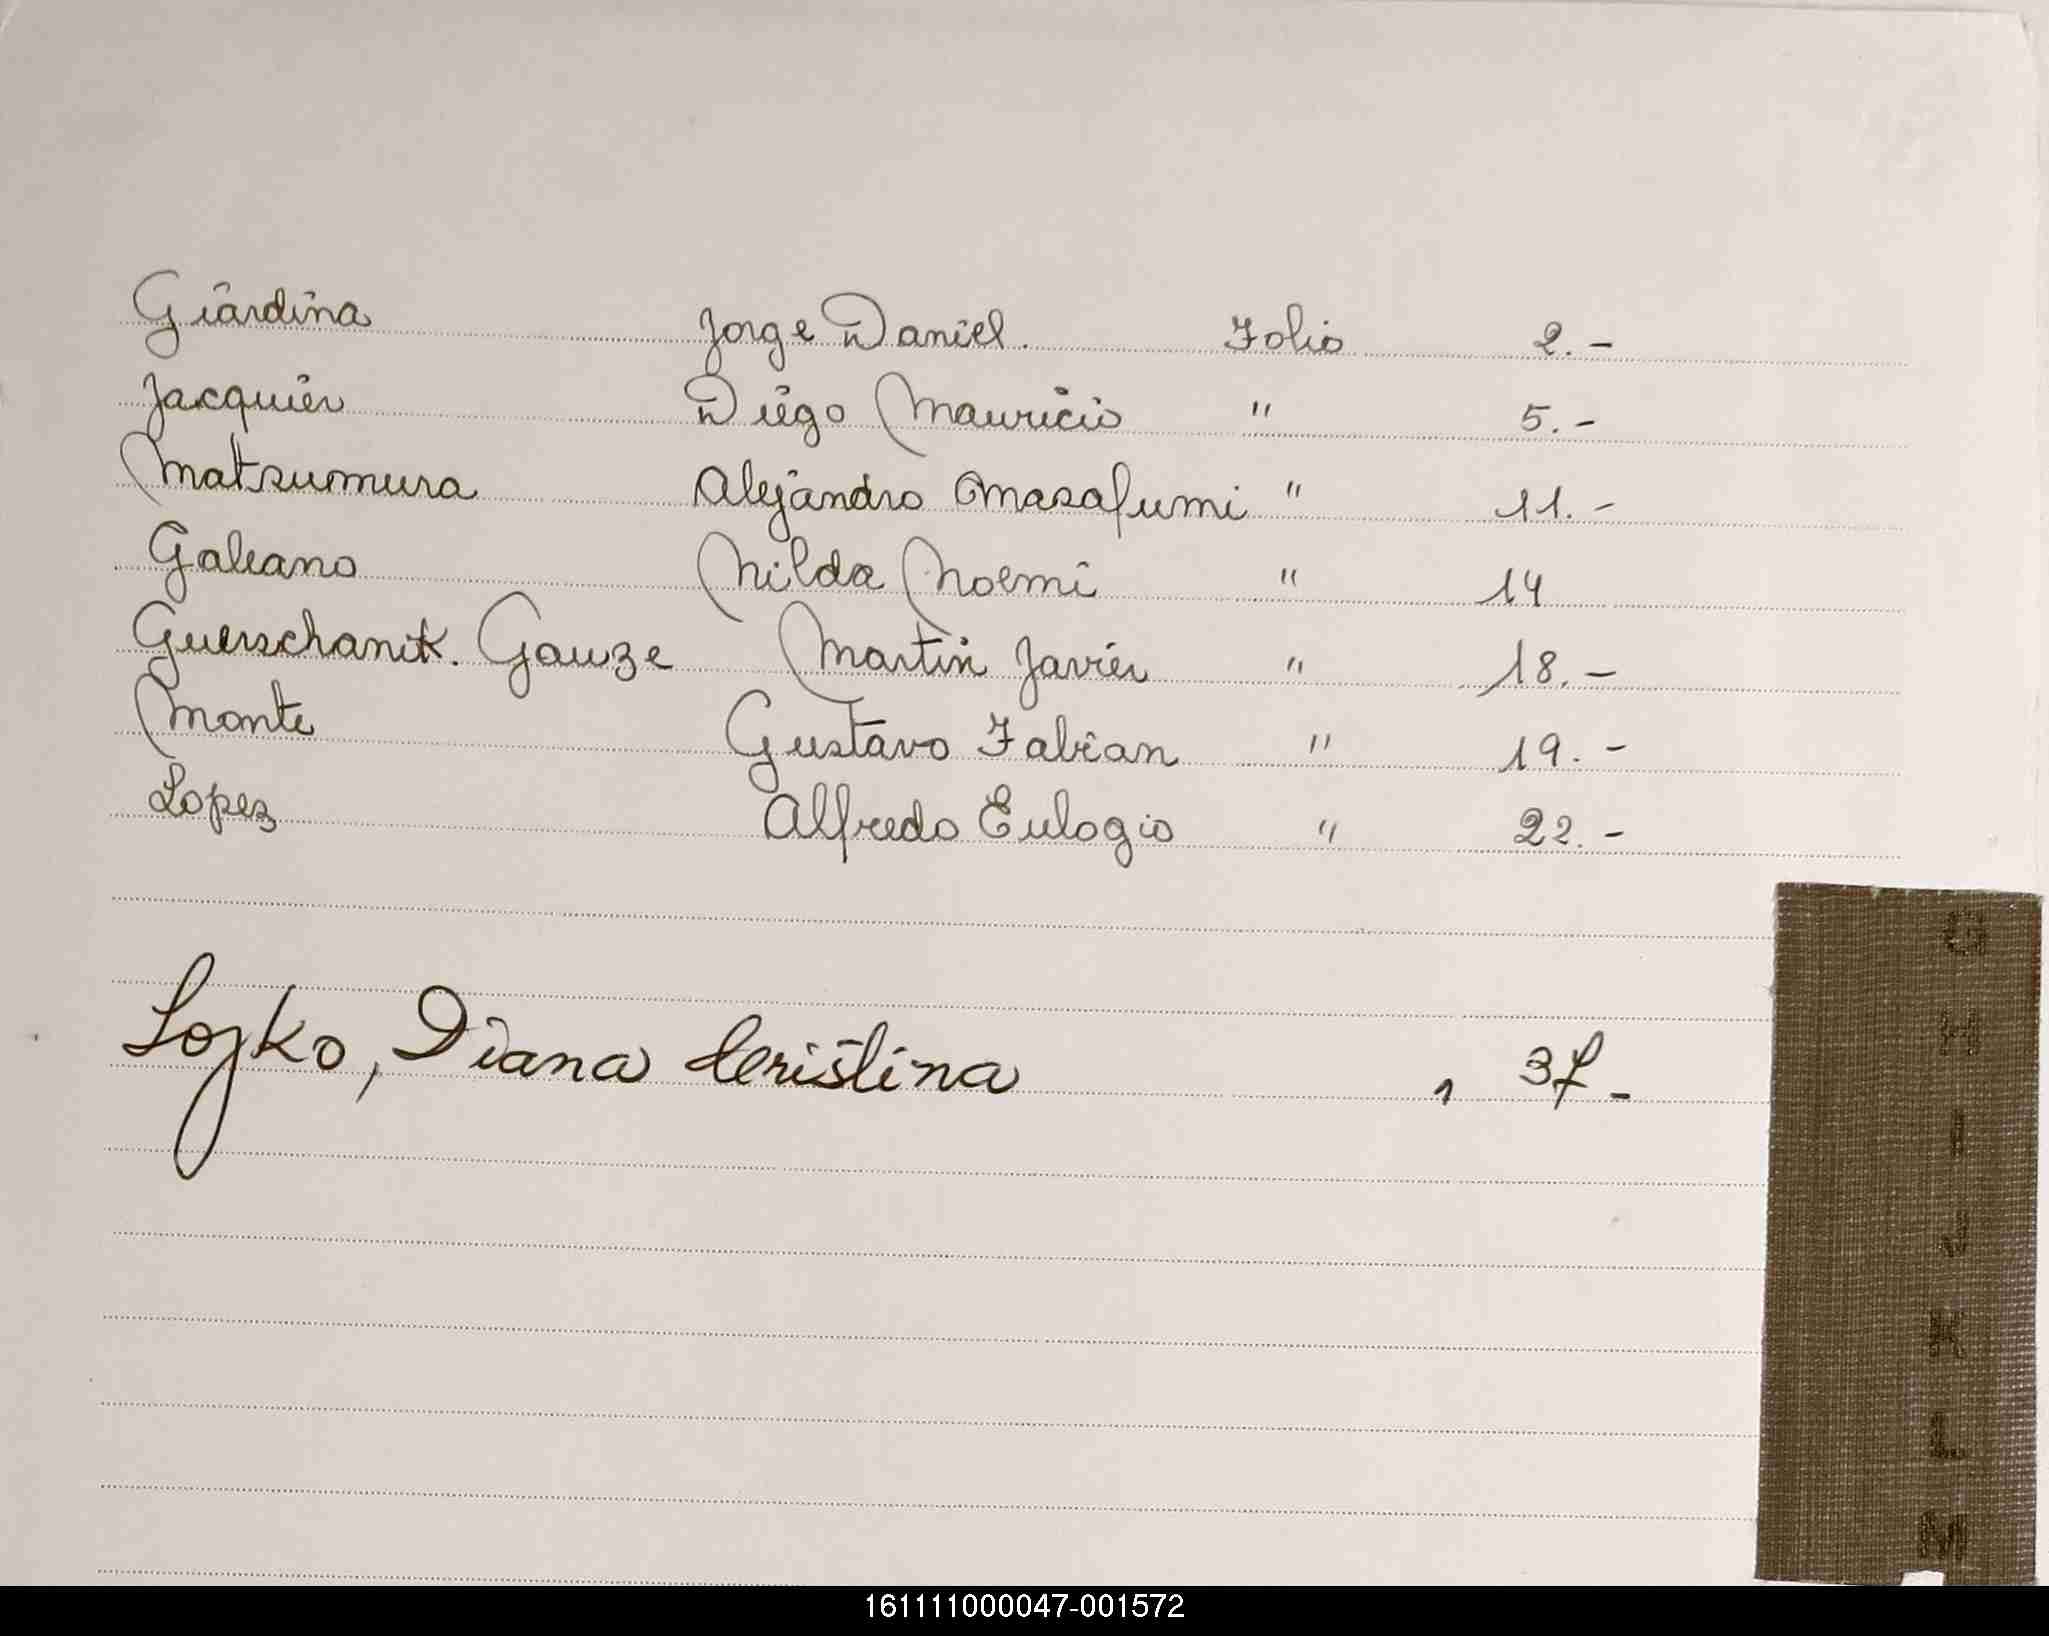 Giardina Jorge Daniel. Folio 2.-
Jacquier Diego Mauricio " 5.-
Matsumura Alejandro Masafumi " 11.-
Galeano Nilda Noemi " 14
Guerschanik. Gauze Martin Javier " 18.-
Monte Gustavo Fabian " 19.-
Lopez Alfredo Eulogio " 22.-
Lojko, Diana Cristina , 37-
G
H
I
J
K
L
M
161111000047-001572